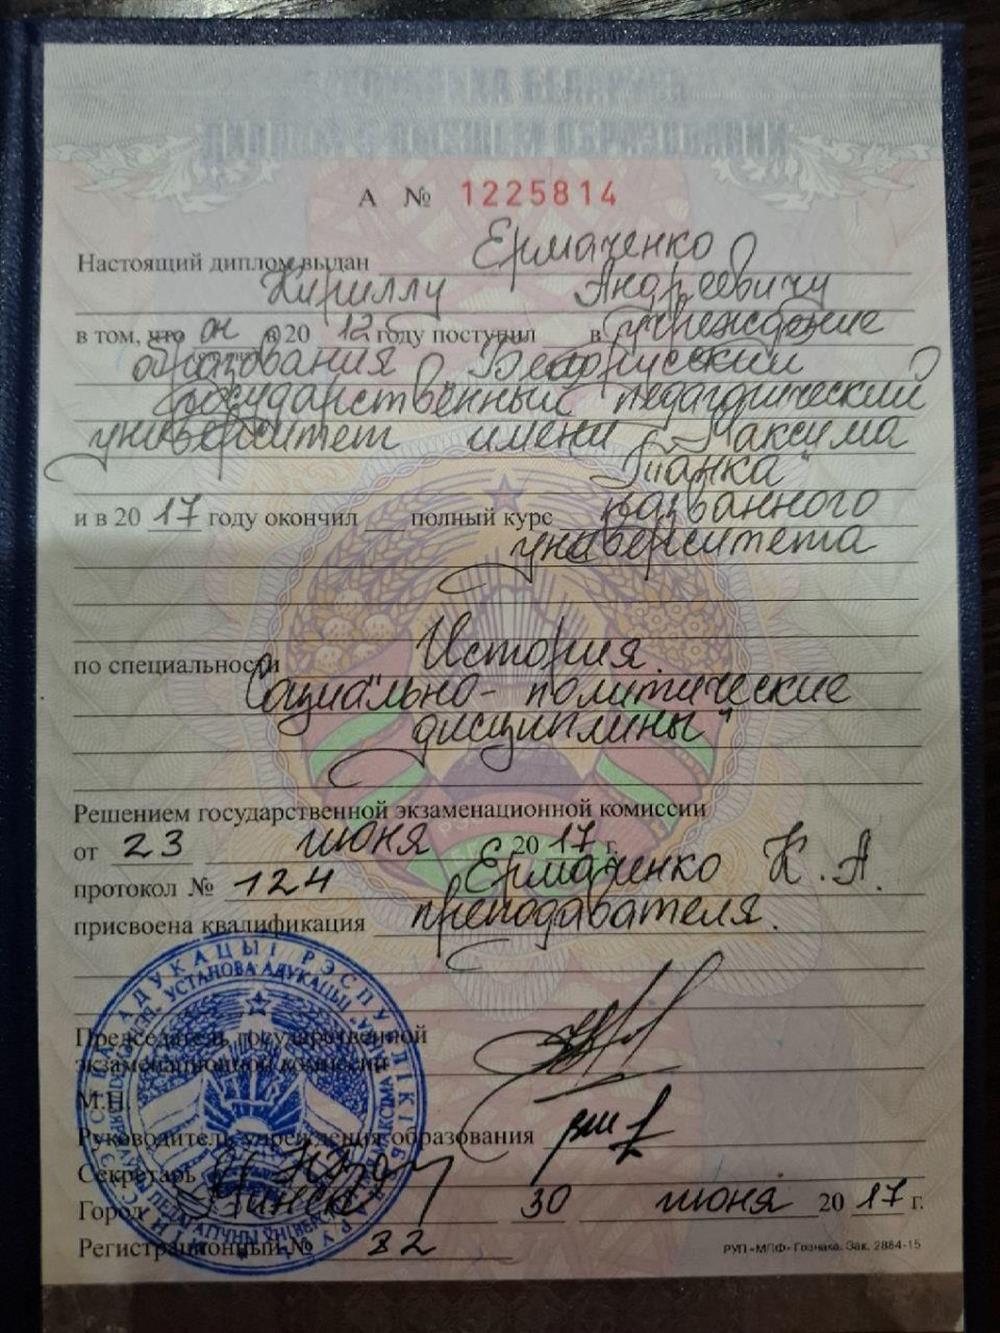 А № 1225814
Настоящий диплом выдан Ермаченко
Кириллу Андреевичу
в том, что он в 20 12 году поступил в учреждение
образования „Белорусский
государственный педагогический
университет имени Максима
Танка“
и в 20 17 году окончил полный курс названного
университета
по специальности „История.
Социально-политические
дисциплины“
Решением государственной экзаменационной комиссии
от 23 июня 20 17 г.
протокол № 124 Ермаченко К. А.
присвоена квалификация преподавателя.
Председатель государственной
экзаменационной комиссии
М.П.
Руководитель учреждения образования
Секретарь
Город Минск 30 июня 20 17 г.
Регистрационный № 82
РУП «МПФ» Гознака. Зак. 2884-15